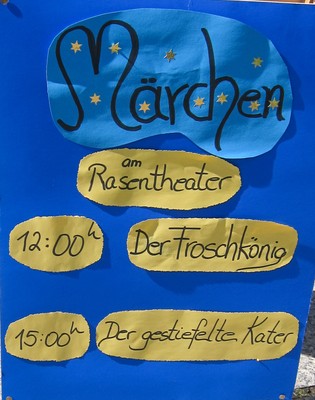 Märchen
am
Rasentheater
12:00h Der Froschkönig
15:00h Der gestiefelte Kater